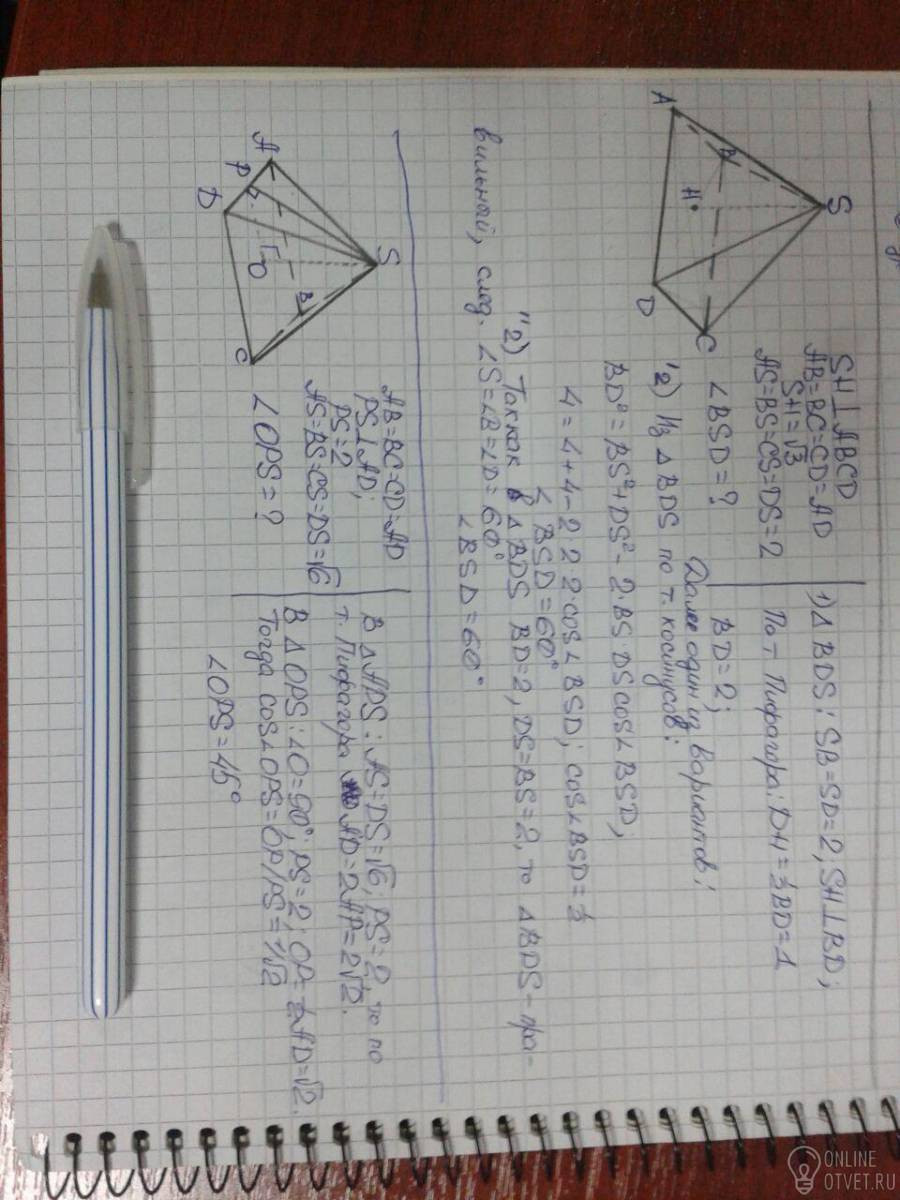 S
A
B
H
D
C
SH⊥ABCD
AB=BC=CD=AD
SH=√3
AS=BS=CS=DS=2
∠BSD=?
1) Δ BDS: SB=SD=2; SH⊥BD;
По т Пифагора: DH=½BD=1
BD=2;
Далее один из вариантов:
'2) Из Δ BDS по т. косинусов:
BD²=BS²+DS²-2·BS·DS cos∠BSD;
4=4+4-2·2·2·cos∠BSD; cos∠BSD=½
∠BSD=60°
"2) Так как в Δ BDS BD=2, DS=BS=2, то Δ BDS - пра-
вильный, след. ∠S=∠B=∠D=60°
∠BSD=60°
S
A
P
D
O
B
C
AB=BC=CD=AD
PS⊥AD;
PS=2
AS=BS=CS=DS=√6
∠OPS=?
В Δ ADS: AS=DS=√6, PS=2, то по
т. Пифагора AD=2AP=2√2.
В Δ OPS: ∠O=90°; PS=2; OP=½AD=√2.
Тогда cos∠OPS=OP/PS=1/√2
∠OPS=45°
ONLINE
OTVET.RU